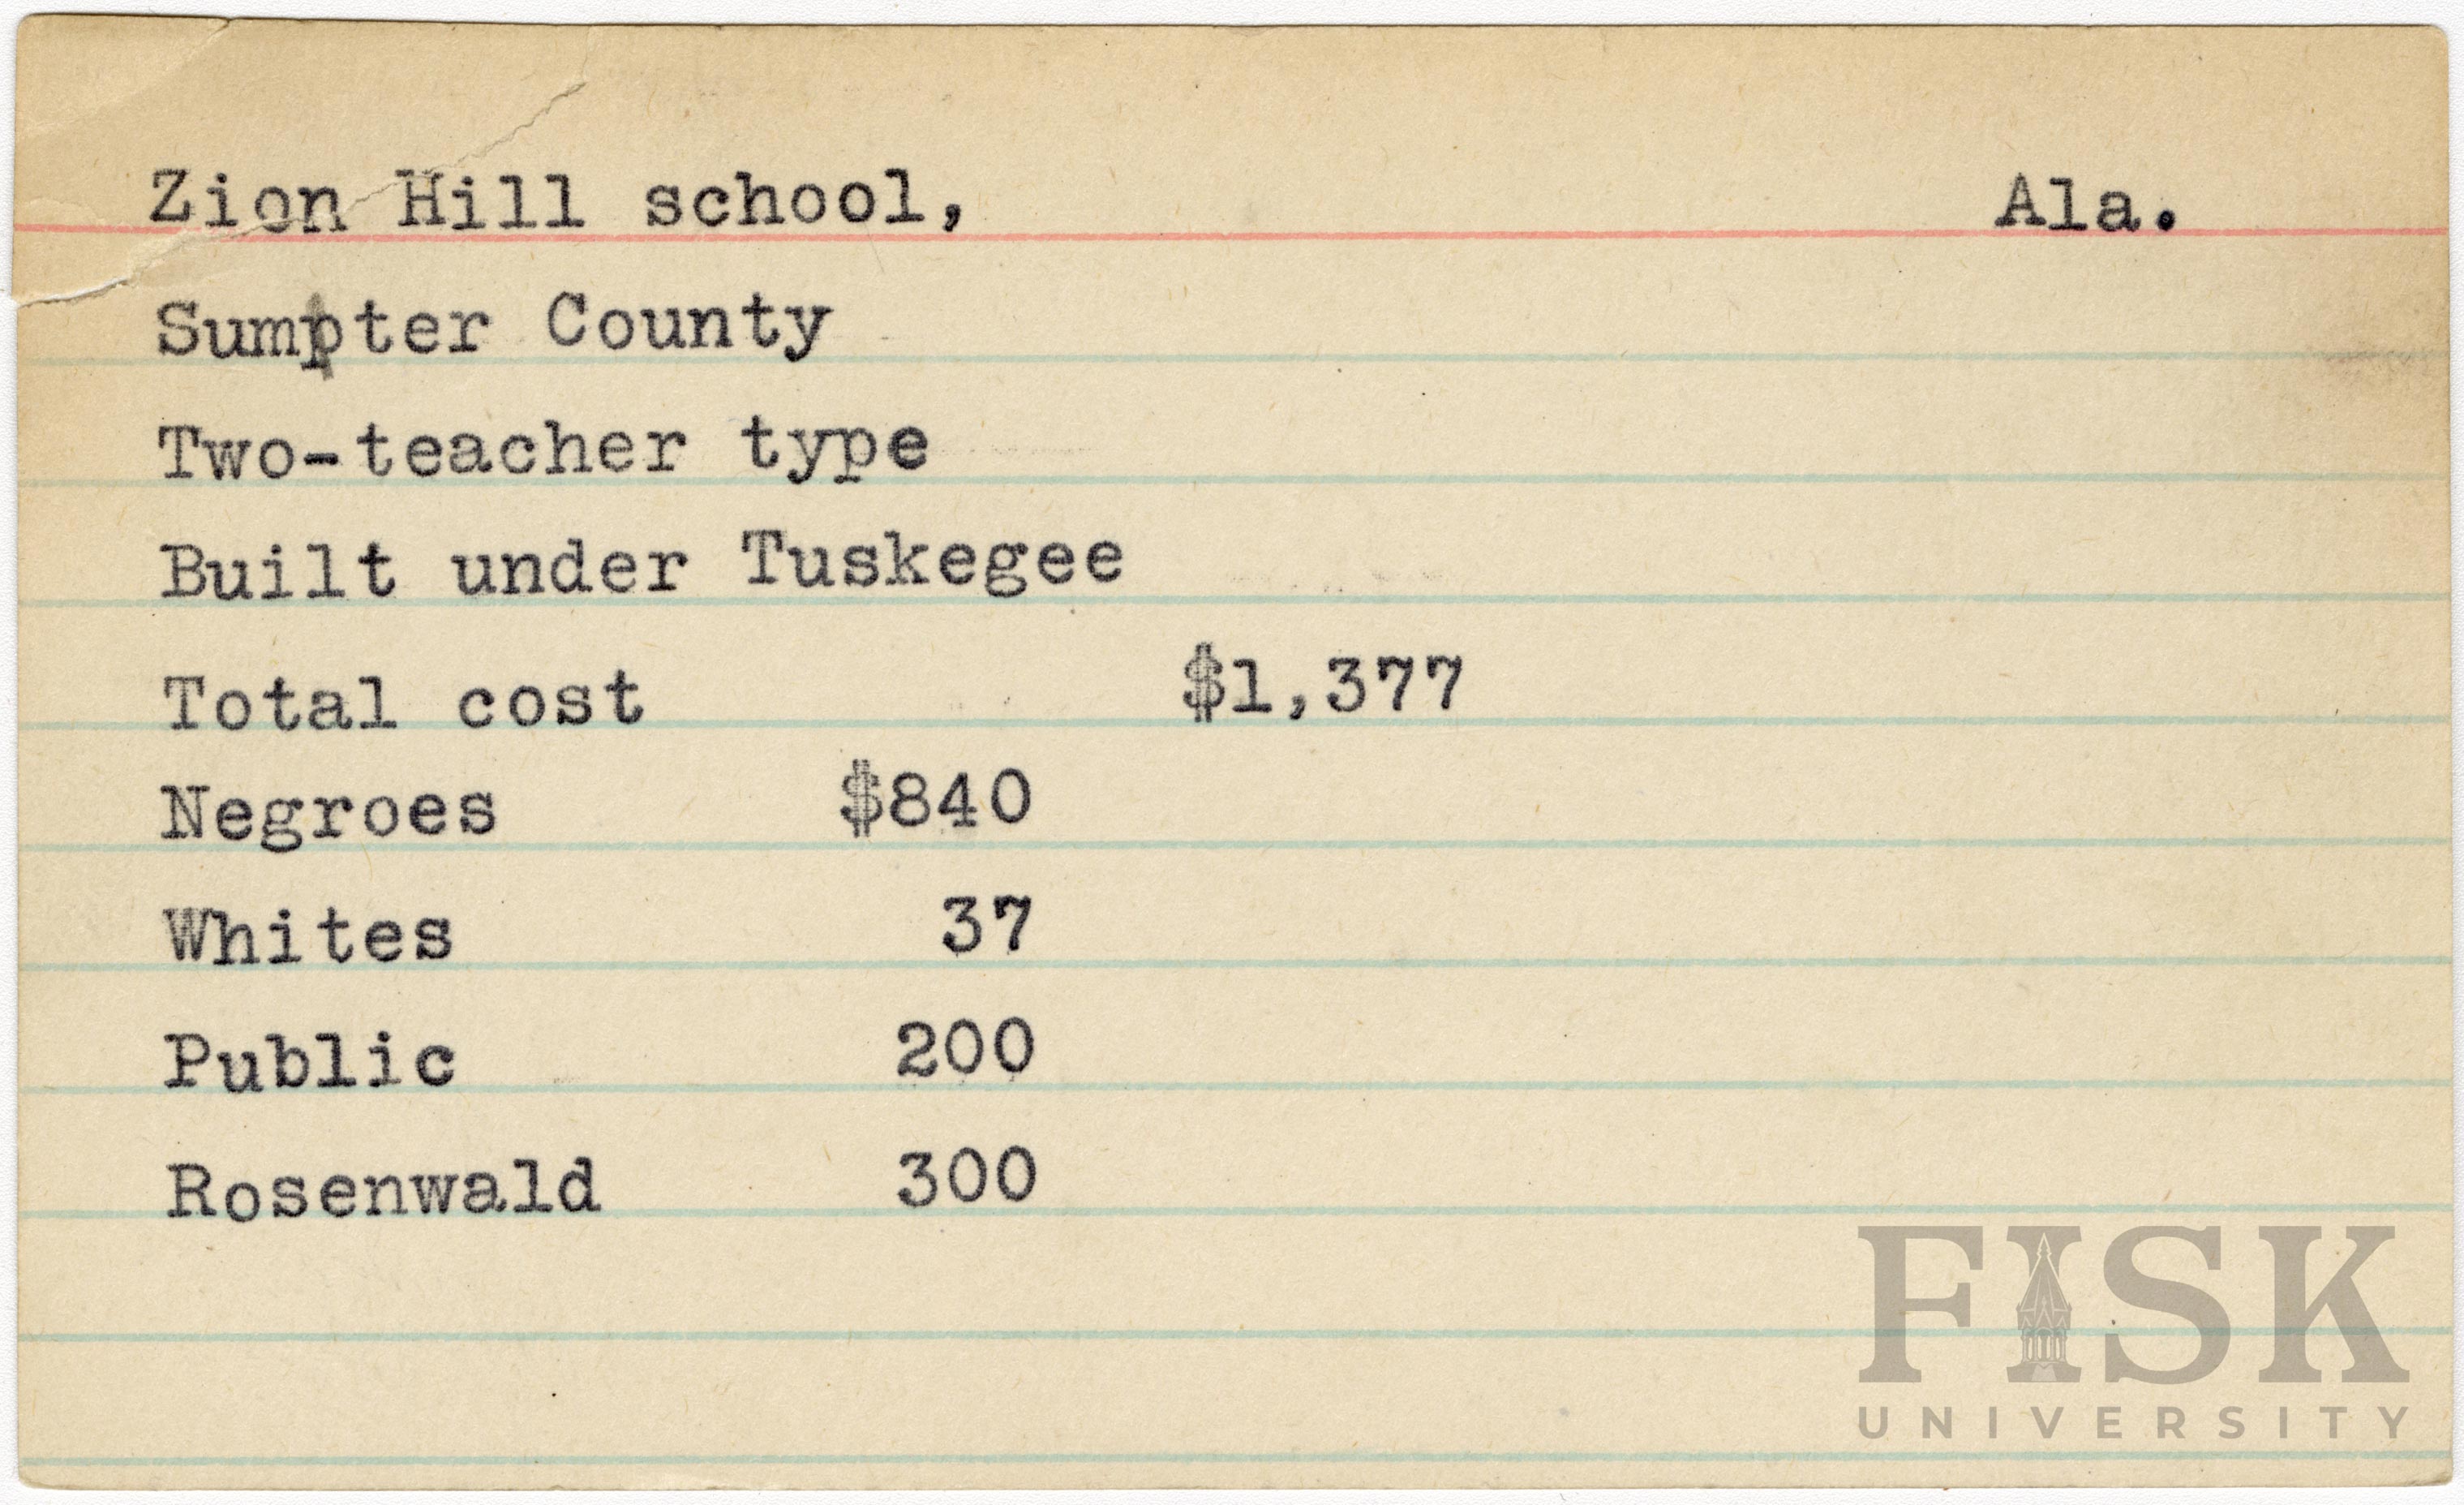 Zion Hill school, Ala.
Sumpter County
Two-teacher type
Built under Tuskegee
Total cost $1,377
Negroes $840
Whites 37
Public 200
Rosenwald 300
FISK
UNIVERSITY